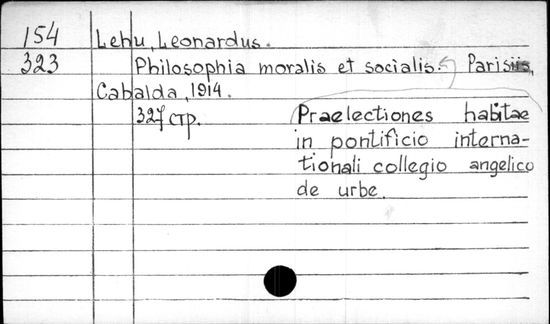 154 Lehu, Leonardus.
323 Philosophia moralis et socialis. Parisiis,
Cabalda, 1914.
327 стр. Praelectiones habitae
in pontificio interna-
tionali collegio angelico
de urbe.